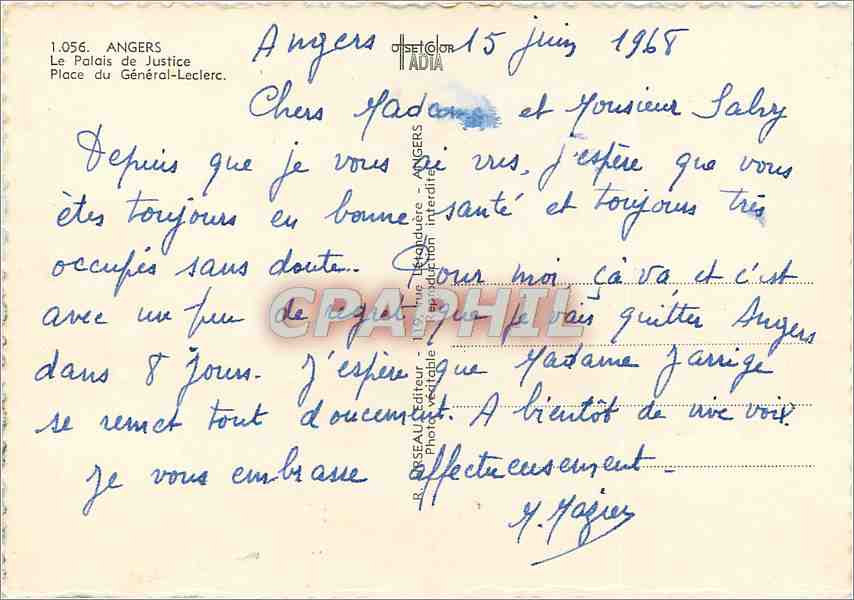 1.056. ANGERS
Le Palais de Justice
Place du Général-Leclerc.
OFFSET COLOR
ADIA
Angers 15 juin 1968
Chers Madame et Monsieur Salvy
Depuis que je vous ai vus, j'espère que vous
êtes toujours en bonne santé et toujours très
occupés sans doute.. Pour moi, çà va, et c'est
avec un peu de regret que je vais quitter Angers
dans 8 jours. J'espère que Madame Jarrige
se remet tout doucement. A bientôt de vive voix.
Je vous embrasse affectueusement.
M. Mazier
R. Editeur - 119, rue Létanduère - ANGERS
Photo véritable - reproduction interdite
CPAPHIL